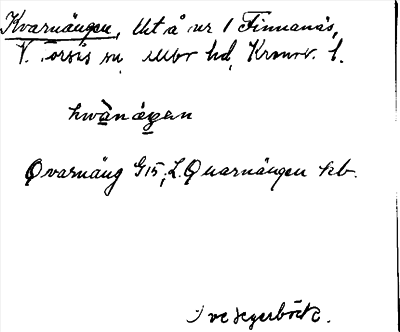 Kvarnängen, tht å nr 1 Finnanäs,
V. Torsås sn Allbo hd, Kronob. l.
kwànägen
Qvarnäng G15; L. Quarnängen kb.
Ivesegerböck.